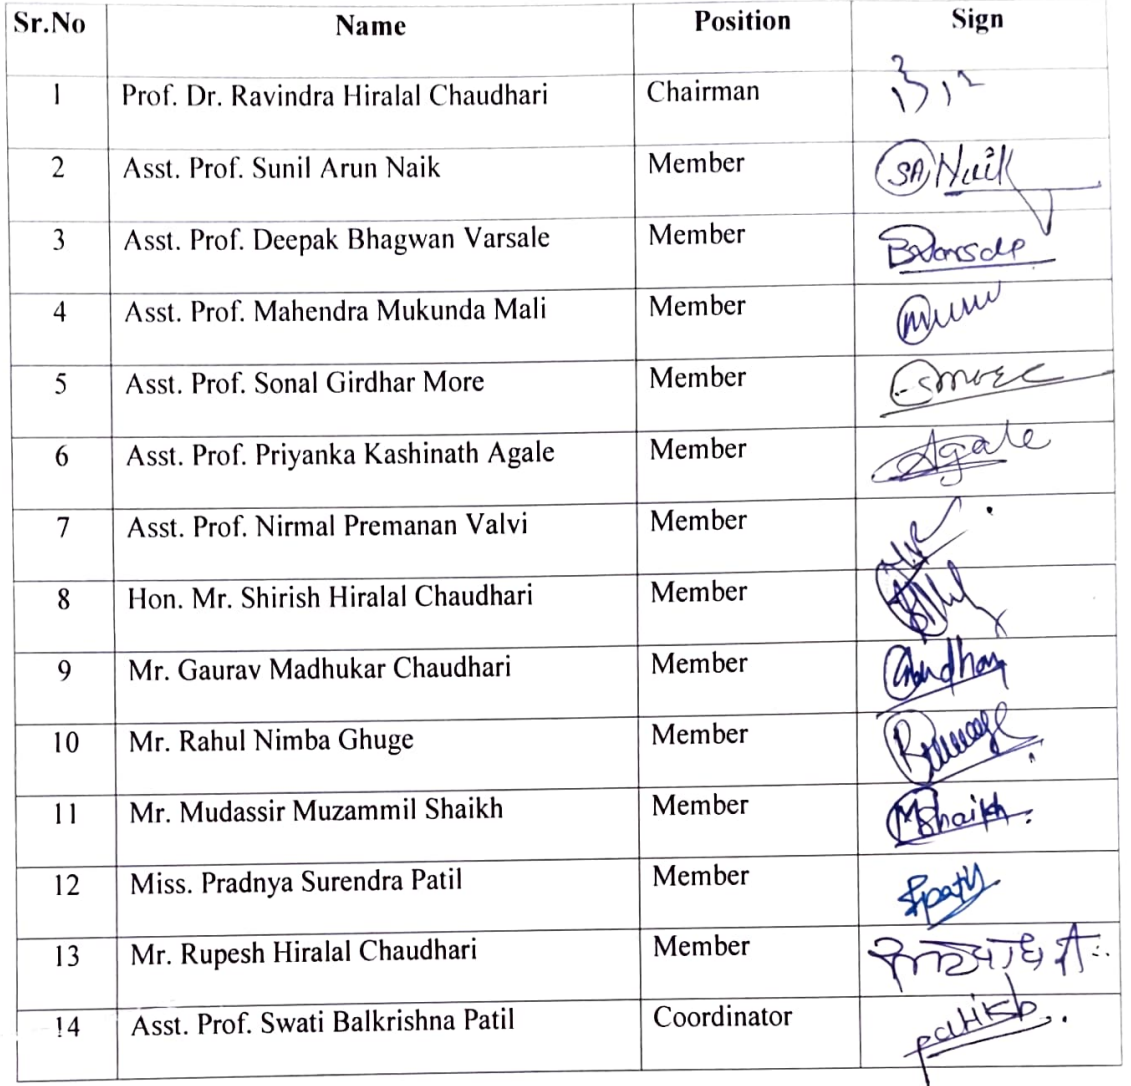 Sr.No Name Position Sign
1 Prof. Dr. Ravindra Hiralal Chaudhari Chairman
2 Asst. Prof. Sunil Arun Naik Member SA Naik
3 Asst. Prof. Deepak Bhagwan Varsale Member
4 Asst. Prof. Mahendra Mukunda Mali Member
5 Asst. Prof. Sonal Girdhar More Member
6 Asst. Prof. Priyanka Kashinath Agale Member Agale
7 Asst. Prof. Nirmal Premanan Valvi Member
8 Hon. Mr. Shirish Hiralal Chaudhari Member
9 Mr. Gaurav Madhukar Chaudhari Member
10 Mr. Rahul Nimba Ghuge Member
11 Mr. Mudassir Muzammil Shaikh Member MShaikh
12 Miss. Pradnya Surendra Patil Member
13 Mr. Rupesh Hiralal Chaudhari Member
14 Asst. Prof. Swati Balkrishna Patil Coordinator